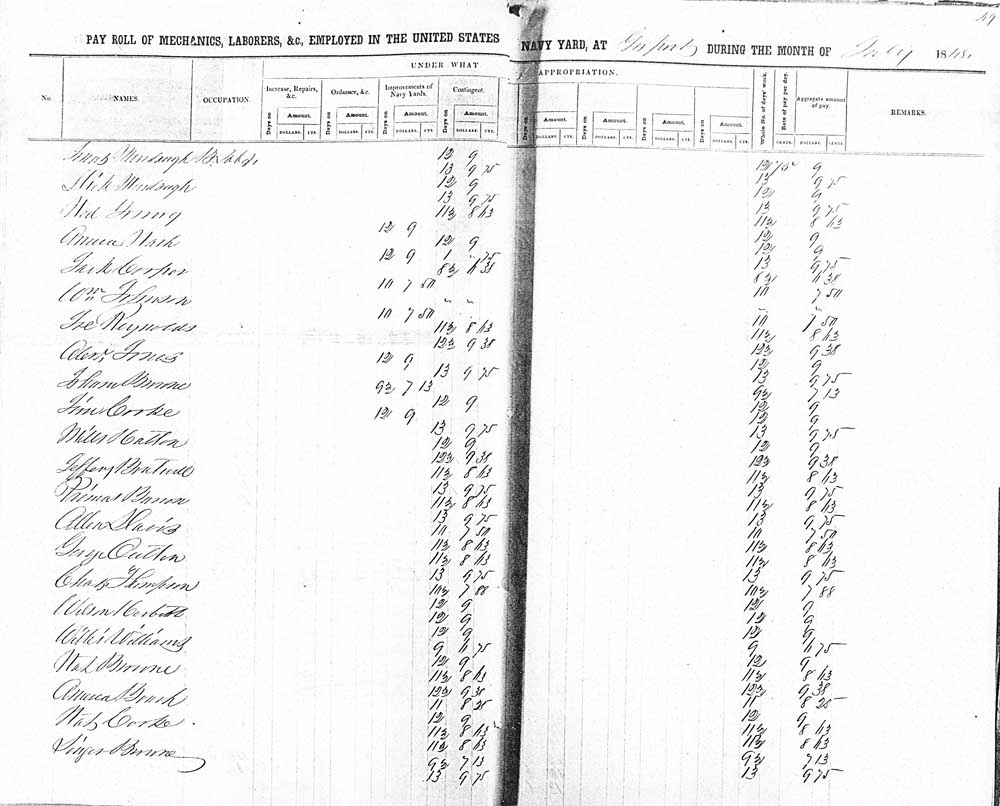 49
PAY ROLL OF MECHANICS, LABORERS, &c., EMPLOYED IN THE UNITED STATES NAVY YARD, AT Gosport DURING THE MONTH OF July 1848.
UNDER WHAT APPROPRIATION.
No. NAMES. OCCUPATION. Increase, Repairs, &c. Ordnance, &c. Improvements of Navy Yards. Contingent. Whole No. of days' work. Rate of pay per day. Aggregate amount of pay. REMARKS.
Days on Amount. Days on Amount. Days on Amount. Days on Amount. Days on Amount. Days on Amount. Days on Amount. Days on Amount.
DOLLARS. CTS. DOLLARS. CTS. DOLLARS. CTS. DOLLARS. CTS. DOLLARS. CTS. DOLLARS. CTS. DOLLARS. CTS. DOLLARS. CTS. CENTS. DOLLARS. CENTS.
12 9 12 75 9
13 9 75 13 9 75
Dick 12 9 12 9
13 9 75 13 9 75
Ned Young 11½ 8 63 11½ 8 63
12 9 12 9
America Nash 12 9 12 9
12 9 1 " 75 13 9 75
Jack Cooper 8½ 6 38 8½ 6 38
10 7 50 10 7 50
Wm Johnson " " " "
10 7 50 10 7 50
Joe Reynolds 11½ 8 63 11½ 8 63
12½ 9 38 12½ 9 38
Jones 12 9 12 9
13 9 75 13 9 75
Browne 9½ 7 13 9½ 7 13
12 9 12 9
Jim Cooke 12 9 12 9
13 9 75 13 9 75
Miles Hatton 12 9 12 9
12½ 9 38 12½ 9 38
Jeffery 11½ 8 63 11½ 8 63
13 9 75 13 9 75
Thomas Barron 11½ 8 63 11½ 8 63
13 9 75 13 9 75
Allen Davis 10 7 50 10 7 50
11½ 8 63 11½ 8 63
George Outten 11½ 8 63 11½ 8 63
13 9 75 13 9 75
Chas Thompson 10½ 7 88 10½ 7 88
12 9 12 9
Wilson 12 9 12 9
12 9 12 9
Willis Williams 9 6 75 9 6 75
12 9 12 9
Nat Browne 11½ 8 63 11½ 8 63
12½ 9 38 12½ 9 38
America 11 8 25 11 8 25
12 9 12 9
Nat Cooke 11½ 8 63 11½ 8 63
11½ 8 63 11½ 8 63
Browne 9½ 7 13 9½ 7 13
13 9 75 13 9 75